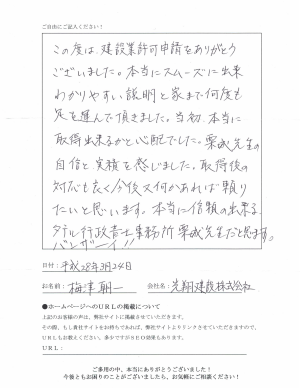 ご自由にご記入ください!
この度は、建設業許可申請をありがとう
ございました。本当にスムーズに出来
わかりやすい説明と家まで何度も
足を運んで頂きました。当初、本当に
取得出来るかと心配でした。栗城先生の
自信と実績を感じました。取得後の
対応も良く今後又何かあれば頼り
たいと思います。本当に信頼の出来る
行政書士事務所 栗城先生だと思います。
バンザーイ!!
日付:平成28年3月24日
お名前:梅津朝一 会社名:光翔建設株式会社
●ホームページへのURLの掲載について
上記のお客様の声は、弊社サイトに掲載させていただきます。
その際、もし貴社サイトをお持ちであれば、弊社サイトよりリンクさせていただきますので、
URLもお教えください。多少ですがSEO効果もあります。
URL:
ご多用の中、本当にありがとうございました!
今後ともお困りのことがございましたら、お気軽にご相談ください!